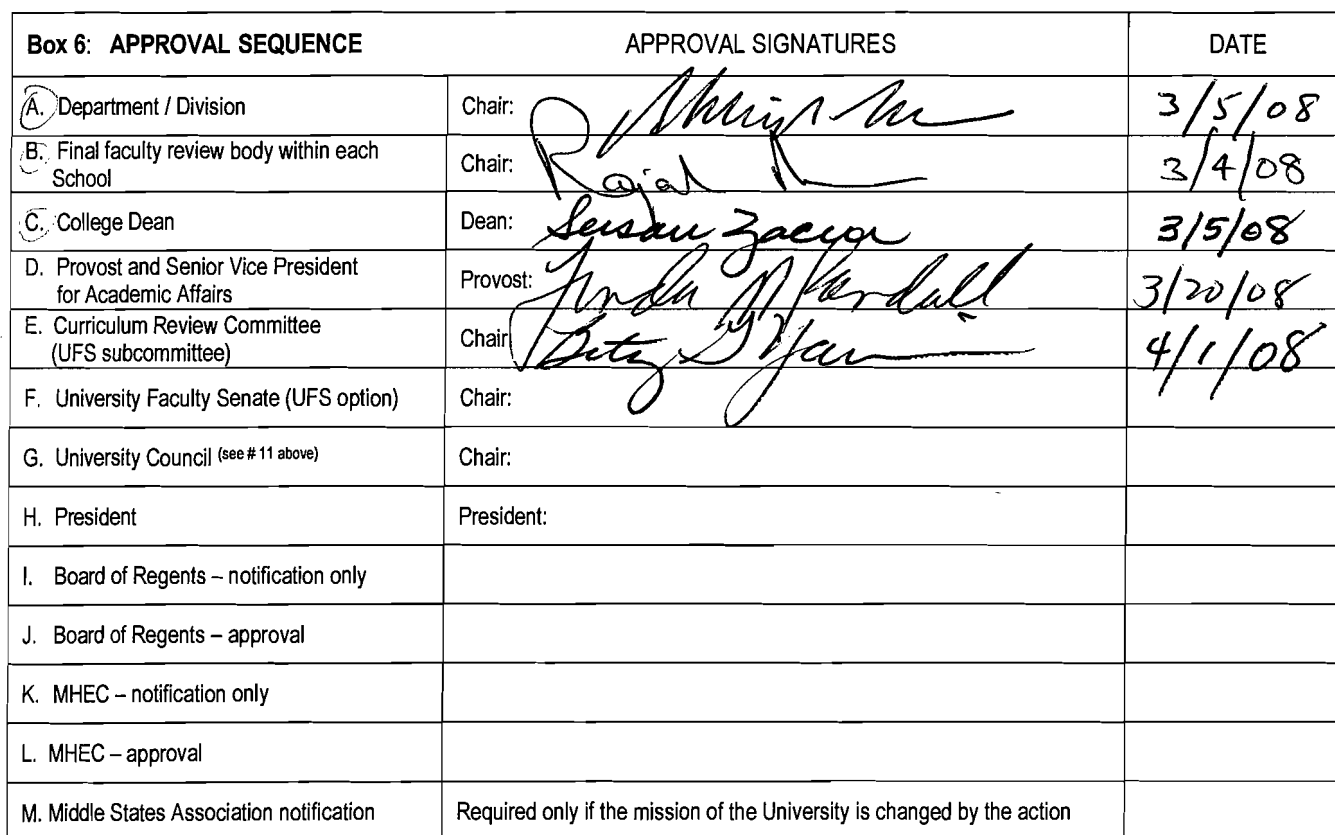 Box 6: APPROVAL SEQUENCE APPROVAL SIGNATURES DATE
A. Department / Division Chair: 3/5/08
B. Final faculty review body within each
School Chair: Rajal 3/4/08
C. College Dean Dean: Susan Zacur 3/5/08
D. Provost and Senior Vice President
for Academic Affairs Provost: 3/20/08
E. Curriculum Review Committee
(UFS subcommittee) Chair 4/1/08
F. University Faculty Senate (UFS option) Chair:
G. University Council (see # 11 above) Chair:
H. President President:
I. Board of Regents – notification only
J. Board of Regents – approval
K. MHEC – notification only
L. MHEC – approval
M. Middle States Association notification Required only if the mission of the University is changed by the action